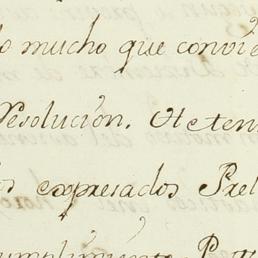 lo mucho que convie
Resolucion. He ten
os expresados Prel
cumplimiento. P